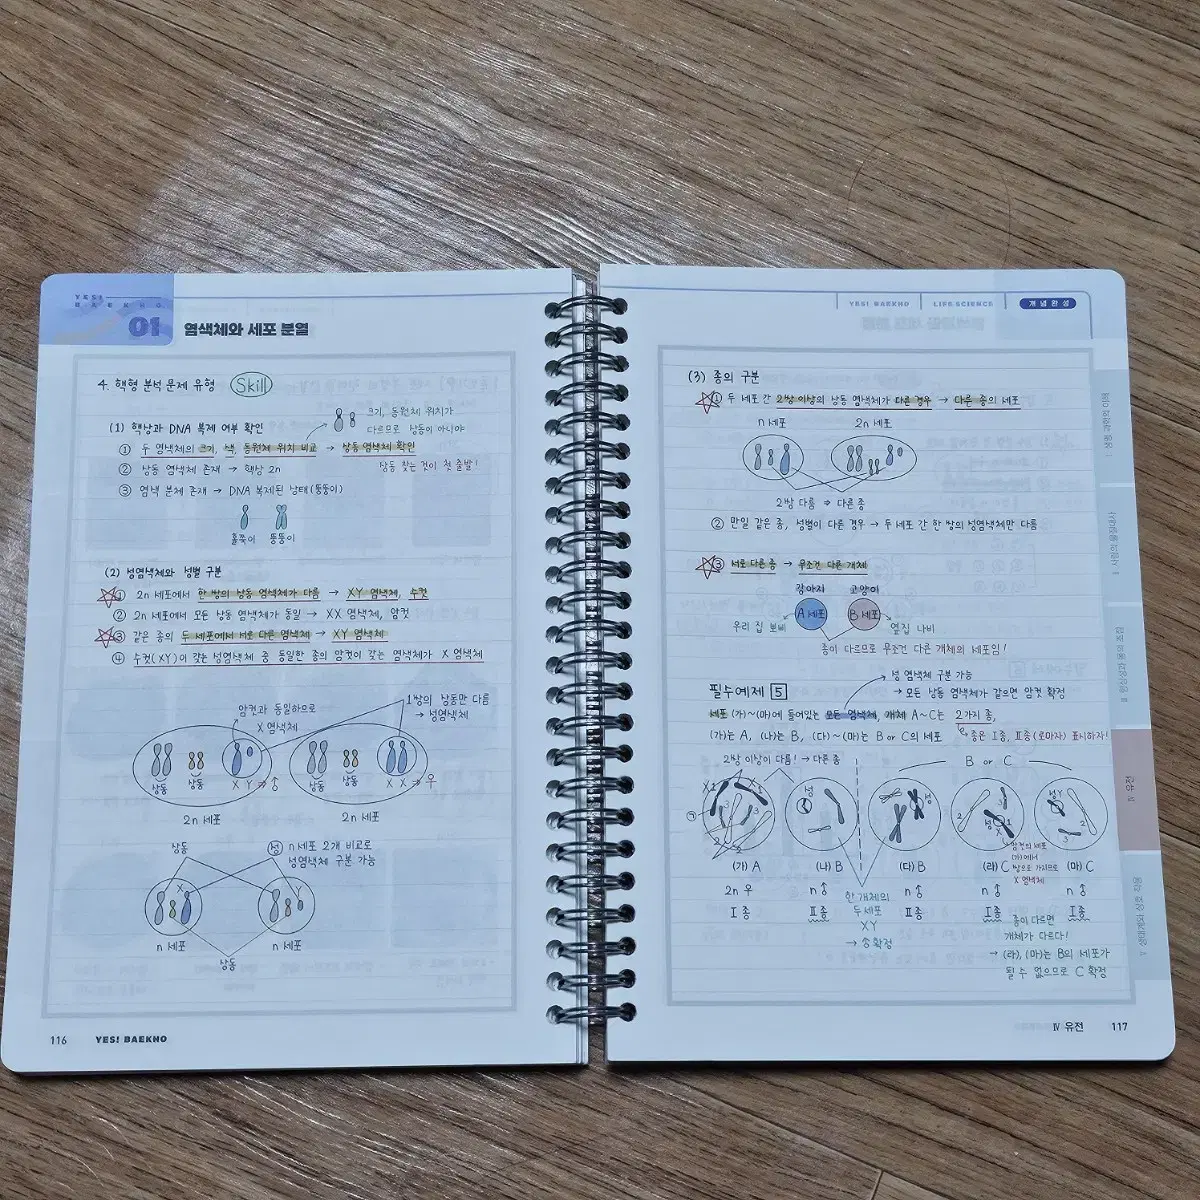 YES!
BAEKHO
01 염색체와 세포 분열
4. 핵형 분석 문제 유형 Skill
(1) 핵상과 DNA 복제 여부 확인
크기, 동원체 위치가
다르므로 상동이 아니야
① 두 염색체의 크기, 색, 동원체 위치 비교 → 상동 염색체 확인
② 상동 염색체 존재 → 핵상 2n
상동 찾는 것이 첫 출발!
③ 염색 분체 존재 → DNA 복제된 상태(뚱뚱이)
홀쭉이 뚱뚱이
(2) 성염색체와 성별 구분
① 2n 세포에서 한 쌍의 상동 염색체가 다름 → XY 염색체, 수컷
② 2n 세포에서 모든 상동 염색체가 동일 → XX 염색체, 암컷
③ 같은 종의 두 세포에서 서로 다른 염색체 → XY 염색체
④ 수컷(XY)이 갖는 성염색체 중 동일한 종의 암컷이 갖는 염색체가 X 염색체
암컷과 동일하므로
X 염색체
1쌍의 상동만 다름
→ 성염색체
상동 상동 X Y ⇒ ♂
상동 상동 X X → ♀
2n 세포 2n 세포
상동
성 n 세포 2개 비교로
성염색체 구분 가능
X Y
n 세포 n 세포
상동
116 YES! BAEKHO
YES! BAEKHO LIFE SCIENCE 개념완성
(3) 종의 구분
① 두 세포 간 2쌍 이상의 상동 염색체가 다른 경우 → 다른 종의 세포
n 세포 2n 세포
2쌍 다름 ⇒ 다른 종
② 만일 같은 종, 성별이 다른 경우 → 두 세포 간 한 쌍의 성염색체만 다름
③ 서로 다른 종 → 무조건 다른 개체
강아지 고양이
A 세포 B 세포
우리 집 뽀삐 옆집 나비
종이 다르므로 무조건 다른 개체의 세포임!
성 염색체 구분 가능
필수예제 5 → 모든 상동 염색체가 같으면 암컷 확정
세포 (가)~(마)에 들어있는 모든 염색체, 개체 A~C는 2가지 종,
(가)는 A, (나)는 B, (다)~(마)는 B or C의 세포
종은 Ⅰ종, Ⅱ종(로마자) 표시하자!
2쌍 이상이 다름! → 다른 종
B or C
(가) A (나) B (다) B (라) C (마) C
암컷의 세포
(가)에서
쌍으로 가지므로
X 염색체
2n ♀ n ♂ n ♂ n ♂ n ♂
Ⅰ종 Ⅱ종 Ⅱ종 Ⅰ종 Ⅰ종
한 개체의
두 세포
XY
→ ♂ 확정
종이 다르면
개체가 다르다!
→ (라), (마)는 B의 세포가
될 수 없으므로 C 확정
Ⅳ 유전 117
Ⅰ 생명 과학의 이해
Ⅱ 사람의 물질대사
Ⅲ 항상성과 몸의 조절
Ⅳ 유전
Ⅴ 생태계와 상호 작용